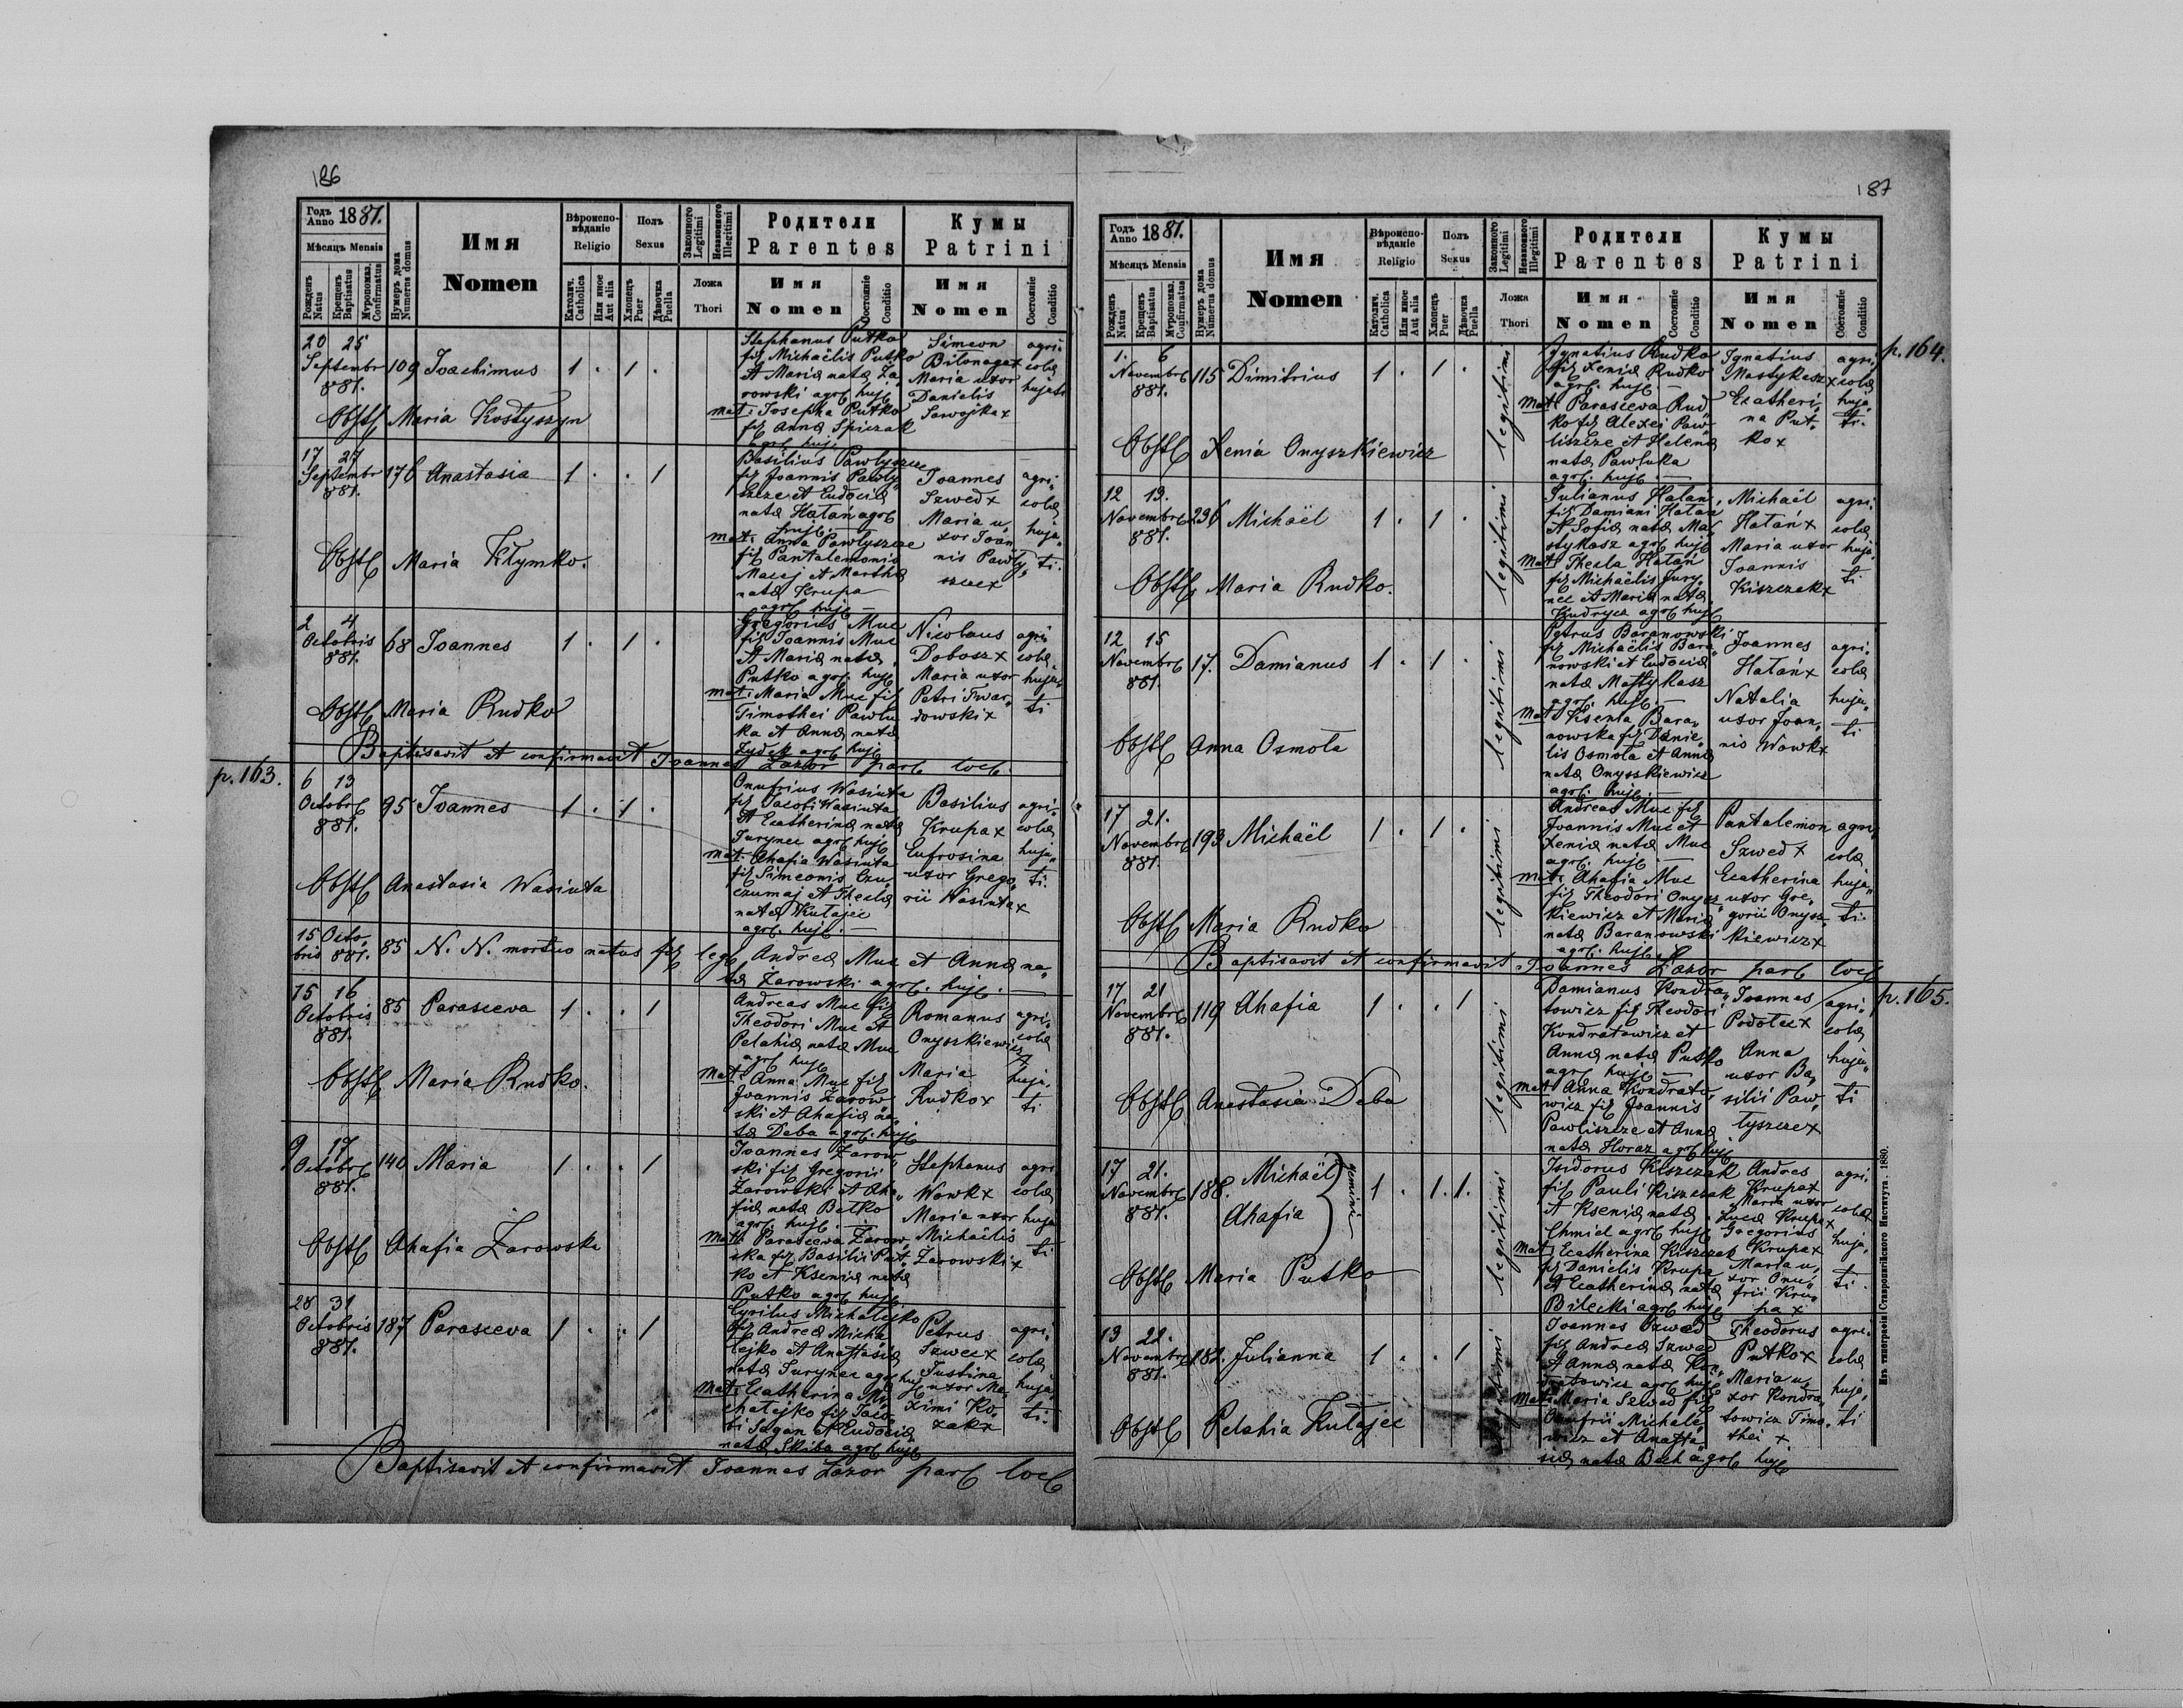 186
Годъ Anno 1881.
Мѣсяцъ Mensis
Рожденъ Natus
Крещенъ Baptisatus
Мѵропомаз. Confirmatus
Нумеръ дома Numerus domus
Имя
Nomen
Вѣроиспо-
вѣданіе
Religio
Католич. Catholica
Или иное Aut alia
Полъ
Sexus
Хлопецъ Puer
Дѣвочка Puella
Законного Legitimi
Незаконного Illegitimi
Ложа
Thori
Родители
Parentes
Имя
Nomen
Состояніе Conditio
Кумы
Patrini
Имя
Nomen
Состояніе Conditio
20 25
Septembr 109 Joachimus 1 . 1 .
881.
Obst Maria Kostyszyn
Stephanus Putko
fil Michaëlis Putko
et Maria nata Ża„
rowski agr. huj.
mat: Josepha Putko
fil Anna Spiczak
agr. huj.
Simeon
Bilonoga x
Maria uxor
Danielis
Sawojka x
agri„
colæ
hujati
17 27
Septembr 176 Anastasia 1 . . 1
881.
Obst Maria Kłymko.
Basilius Pawłyszcze
fil Joannis Pawły„
szcze et Eudocia
nata Hatań agr
huj.
mat: Anna Pawłyszcze
fil Pantalemonis
Maciej et Martha
nata Krupa
agr. huj. —
Joannes
Szwed x
Maria u„
xor Joan„
nis Pawły„
szcze x
agri„
colæ
huja„
ti.
2 4
Octobris 68 Joannes 1 . 1 .
881.
Obst Maria Rudko
Gregorius Muc
fil Joannis Muc
et Maria nata
Putko agr. huj.
mat: Maria Muc fil
Timothei Pawlu
ka et Anna nata
Żydek agr. huj.
Nicolaus
Dobosz x
Maria uxor
Petri Twar„
dowski x
agri„
colæ
huja„
ti
Baptisavit et confirmavit Joannes Lazor par. loc.
p. 163.
6 13
Octobr 95 Joannes 1 . 1 .
881.
Obst Anastasia Wasiuta
Onufrius Wasiuta
fil Jacobi Wasiuta
et Ecatherina nata
Jurynec agr. huj.
mat. Ahafia Wasiuta
fil Simeonis Czu„
czumaj et Thecla
nata Kułajec
agr. huj. —
Basilius
Krupa x
Eufrosina
uxor Grego„
rii Wasiuta x
agri„
colæ
huja„
ti.
15 Octo„
bris 881. 85 N. N. mortuo natus fil leg. Andreæ Muc et Anna na„
ta Żarowski agr. huj. —
15 16
Octobris 85 Parasceva 1 . . 1
881.
Obst Maria Rudko.
Andreas Muc fil
Theodori Muc et
Pelahia nata Muc
agr. huj.
Mat: Anna Muc fil
Joannis Żarow„
ski et Ahafia na„
ta Deba agr. huj.
Romanus
Onyszkiewicz x
Maria
Rudko x
agri„
colæ
huja„
ti
9 17
Octobr 140 Maria 1 . . 1
881.
Obst Ahafia Żarowska
Joannes Żarow„
ski fil Gregorii
Żarowski et Aha„
fia nata Bełko
agr. huj. —
Mat: Parasceva Żarow„
ska fil Basilii Put„
ko et Ksenia nata
Putko agr. huj.
Stephanus
Wowk x
Maria uxor
Michaëlis
Żarowski x
agri
colæ
huja
ti
28 31
Octobris 187 Parasceva 1 . . 1
881.
Cyrilus Michałejko
fil Andreæ Micha„
łejko et Anastasia
nata Jurynec agr. huj.
Mat: Ecatherina Mi„
chałejko fil Jaco„
bi Sagan et Eudocia
nata Skiba agr. huj.
Petrus
Szwec x
Justina
uxor Ma„
ximi Ko„
zak x
agri„
colæ
huja„
ti.
Baptisavit et confirmavit Joannes Lazor par. loc.
187
Годъ Anno 1881.
Мѣсяцъ Mensis
Рожденъ Natus
Крещенъ Baptisatus
Мѵропомаз. Confirmatus
Нумеръ дома Numerus domus
Имя
Nomen
Вѣроиспо-
вѣданіе
Religio
Католич. Catholica
Или иное Aut alia
Полъ
Sexus
Хлопецъ Puer
Дѣвочка Puella
Законного Legitimi
Незаконного Illegitimi
Ложа
Thori
Родители
Parentes
Имя
Nomen
Состояніе Conditio
Кумы
Patrini
Имя
Nomen
Состояніе Conditio
p. 164.
1. 6
Novembr 115 Dimitrius 1 . 1 .
881.
Obst Xenia Onyszkiewicz
legitimi
Ignatius Rudko
fil Xenia Rudko
agr. huj. —
Mat: Parasceva Rud„
ko fil Alexei Paw„
liszcze et Helena
nata Pawluka
agr. huj. —
Ignatius
Mastykasz x
Ecatheri„
na Put„
ko x
agri„
colæ
huja„
ti.
12 13.
Novembr 236 Michaël 1 . 1 .
881.
Obst Maria Rudko.
legitimi
Julianus Hatań
fil Damiani Hatań
et Sofia nata Ma„
stykasz agr. huj.
Mat: Thecla Hatań
fil Michaëlis Jury„
nec et Maria nata
Kudryca agr. huj.
Michaël
Hatań x
Maria uxor
Joannis
Kiszczak x
agri„
colæ
huja„
ti
12 15
Novembr 17. Damianus 1 . 1 .
881.
Obst Anna Osmoła
legitimi
Petrus Baranowski
fil Michaëlis Bara„
nowski et Eudocia
nata Mastykasz
agr. huj. —
Mat: Ksenia Bara„
nowska fil Danie„
lis Osmoła et Anna
nata Onyszkiewicz
agr. huj. —
Joannes
Hatań x
Natalia
uxor Joan„
nis Wowk x
agri„
colæ
huja„
ti
17 21.
Novembr 193 Michaël 1 . 1 .
881.
Obst Maria Rudko
legitimi
Andreas Muc fil
Joannis Muc et
Xenia nata Muc
agr. huj. —
Mat: Ahafia Muc
fil Theodori Onysz„
kiewicz et Maria
nata Baranowski
agr. huj.
Pantalemon
Szwed x
Ecatherina
uxor Gre„
gorii Onysz„
kiewicz x
agri„
colæ
huja„
ti.
Baptisavit et confirmavit Joannes Lazor par. loc.
p. 165.
17 21
Novembr 119 Ahafia 1 . . 1
881.
Obst Anastasia Deba
legitimi
Damianus Kondra„
towicz fil Theodori
Kondratowicz et
Anna nata Putko
agr. huj. —
Mat: Anna Kondrato„
wicz fil Joannis
Pawliszcze et Anna
nata Horaz agr. huj.
Joannes
Podolec x
Anna
uxor Ba„
silii Paw„
łyszcze x
agri„
colæ
huja„
ti
17 21.
Novembr 188. Michaël 1 . 1. 1.
881. Ahafia
gemini
Obst Maria Putko
legitimi
Isidorus Kiszczak
fil Pauli Kiszczak
et Ksenia nata
Chmiel agr. huj.
Mat: Ecatherina Kiszczak
fil Danielis Krupa
et Ecatherina nata
Bilecki agr. huj.
Andreas
Krupa x
Maria uxor
Lucæ Krupa x
Gregorius
Krupa x
Maria u„
xor Onu„
frii Kru„
pa x
agri„
colæ
huja„
ti.
13 22.
Novembr 182. Julianna 1 . . 1
881.
Obst Pelahia Kułajec
legitimi
Joannes Szwed
fil Andreæ Szwed
et Anna nata Kon„
dratowicz agr. huj.
Mat: Maria Szwed fil
Onufrii Michale„
wicz et Anasta„
sia nata Bech agr. huj.
Theodorus
Putko x
Maria u„
xor Kondra„
towicz Timo„
thei x
agri„
colæ
huja„
ti
Изъ типографіи Ставропигійского Института. 1880.